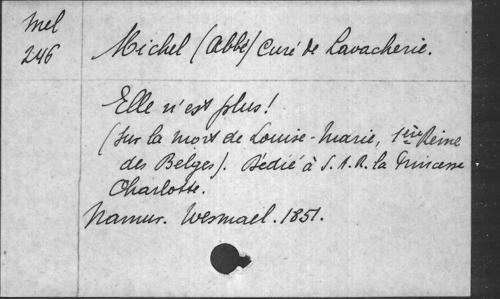 Mel
246
Michel (Abbé) Curé de Lavacherie.
Elle n'est plus!
(Sur la mort de Louise-Marie, 1ère Reine
des Belges). Dédié à S.A.R. la Princesse
Charlotte.
Namur. Wesmael. 1851.